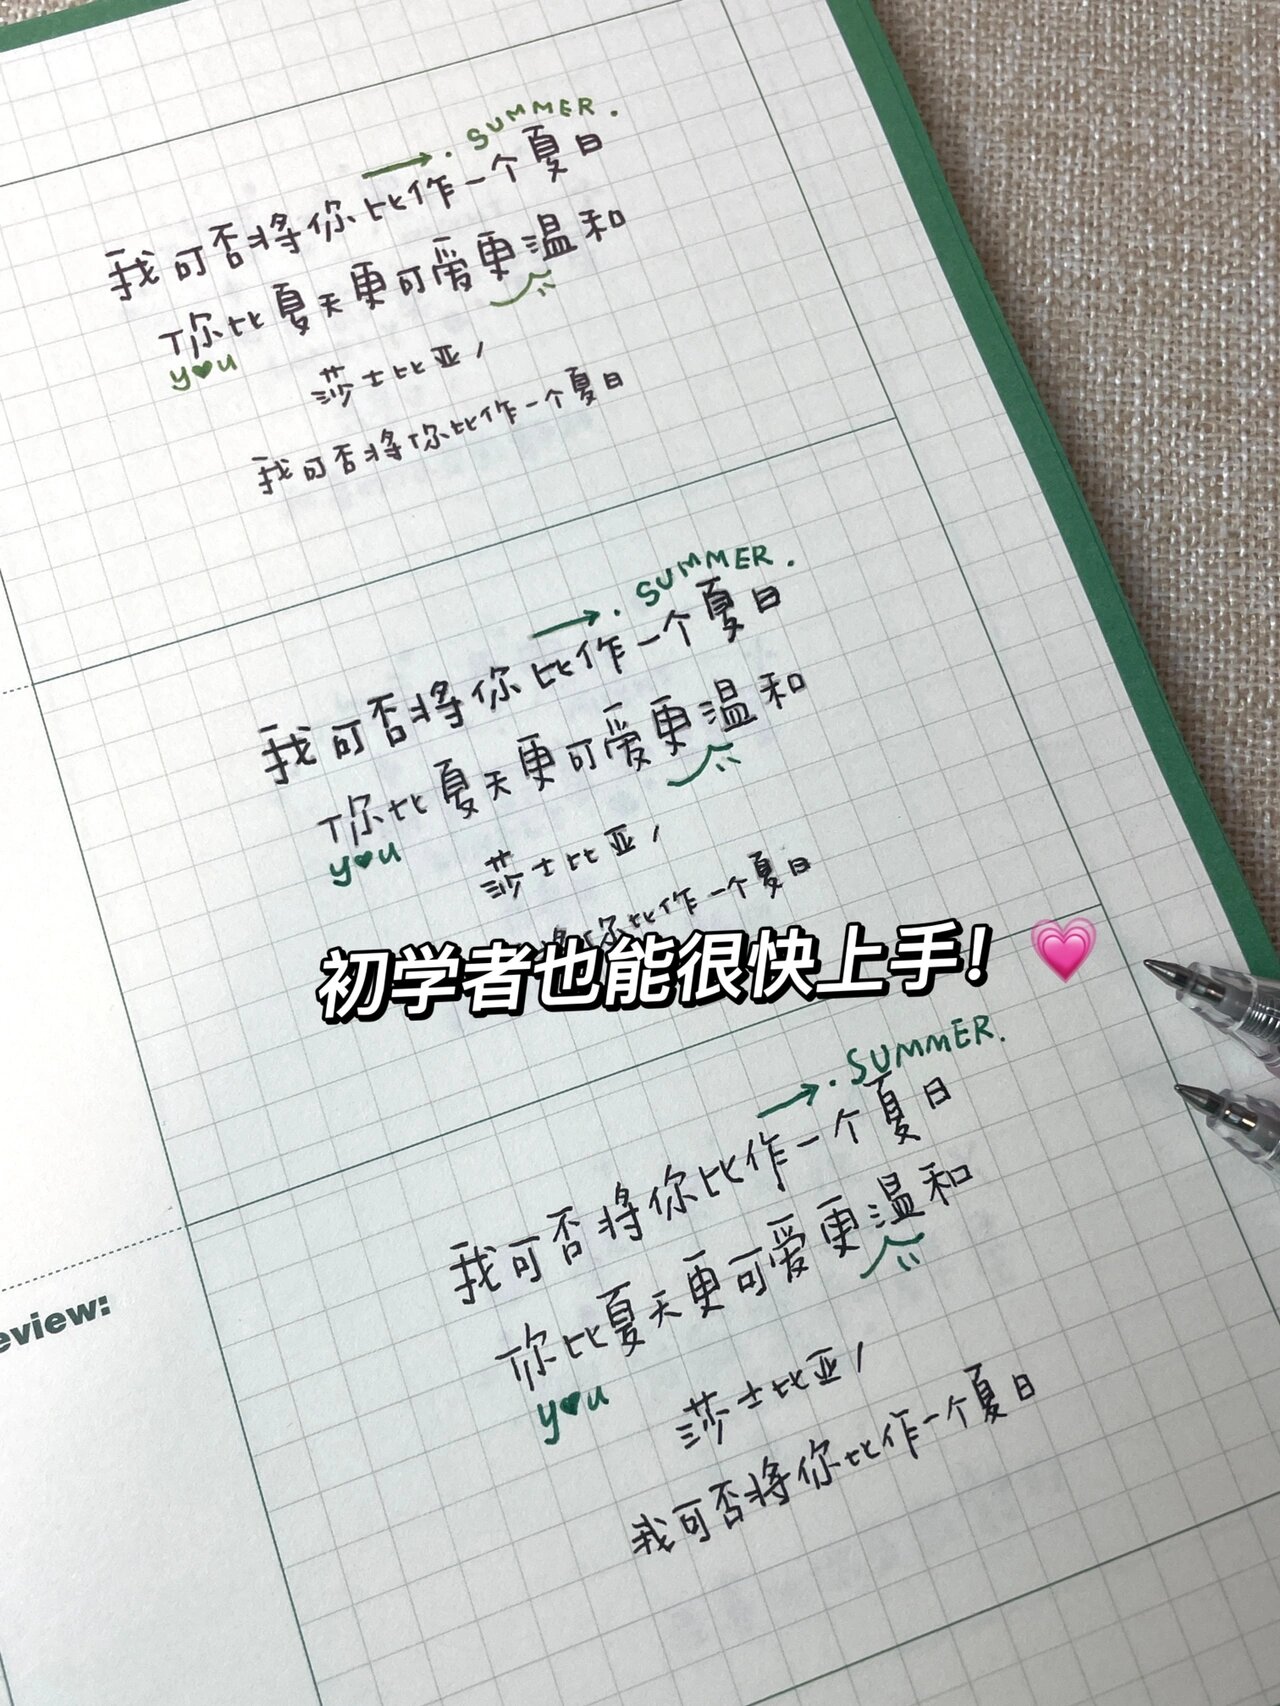 SUMMER.
我可否将你比作一个夏日
你比夏天更可爱更温和
you
莎士比亚
我可否将你比作一个夏日
SUMMER.
我可否将你比作一个夏日
你比夏天更可爱更温和
you
莎士比亚
将你比作一个夏日
初学者也能很快上手！
SUMMER.
我可否将你比作一个夏日
eview:
你比夏天更可爱更温和
you
莎士比亚
我可否将你比作一个夏日